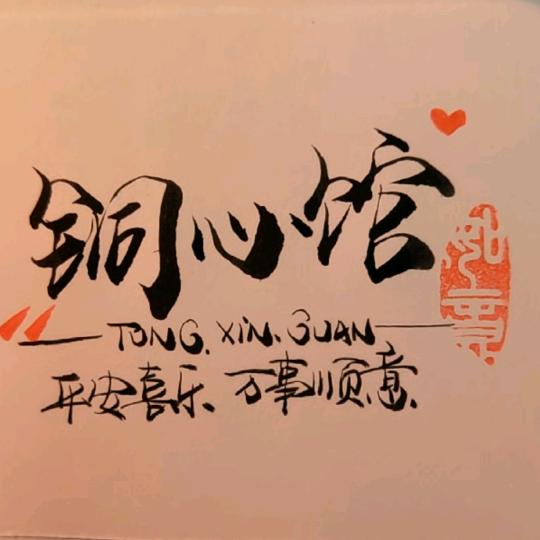 铜心馆
TONG. XIN. GUAN
平安喜乐、万事顺意.